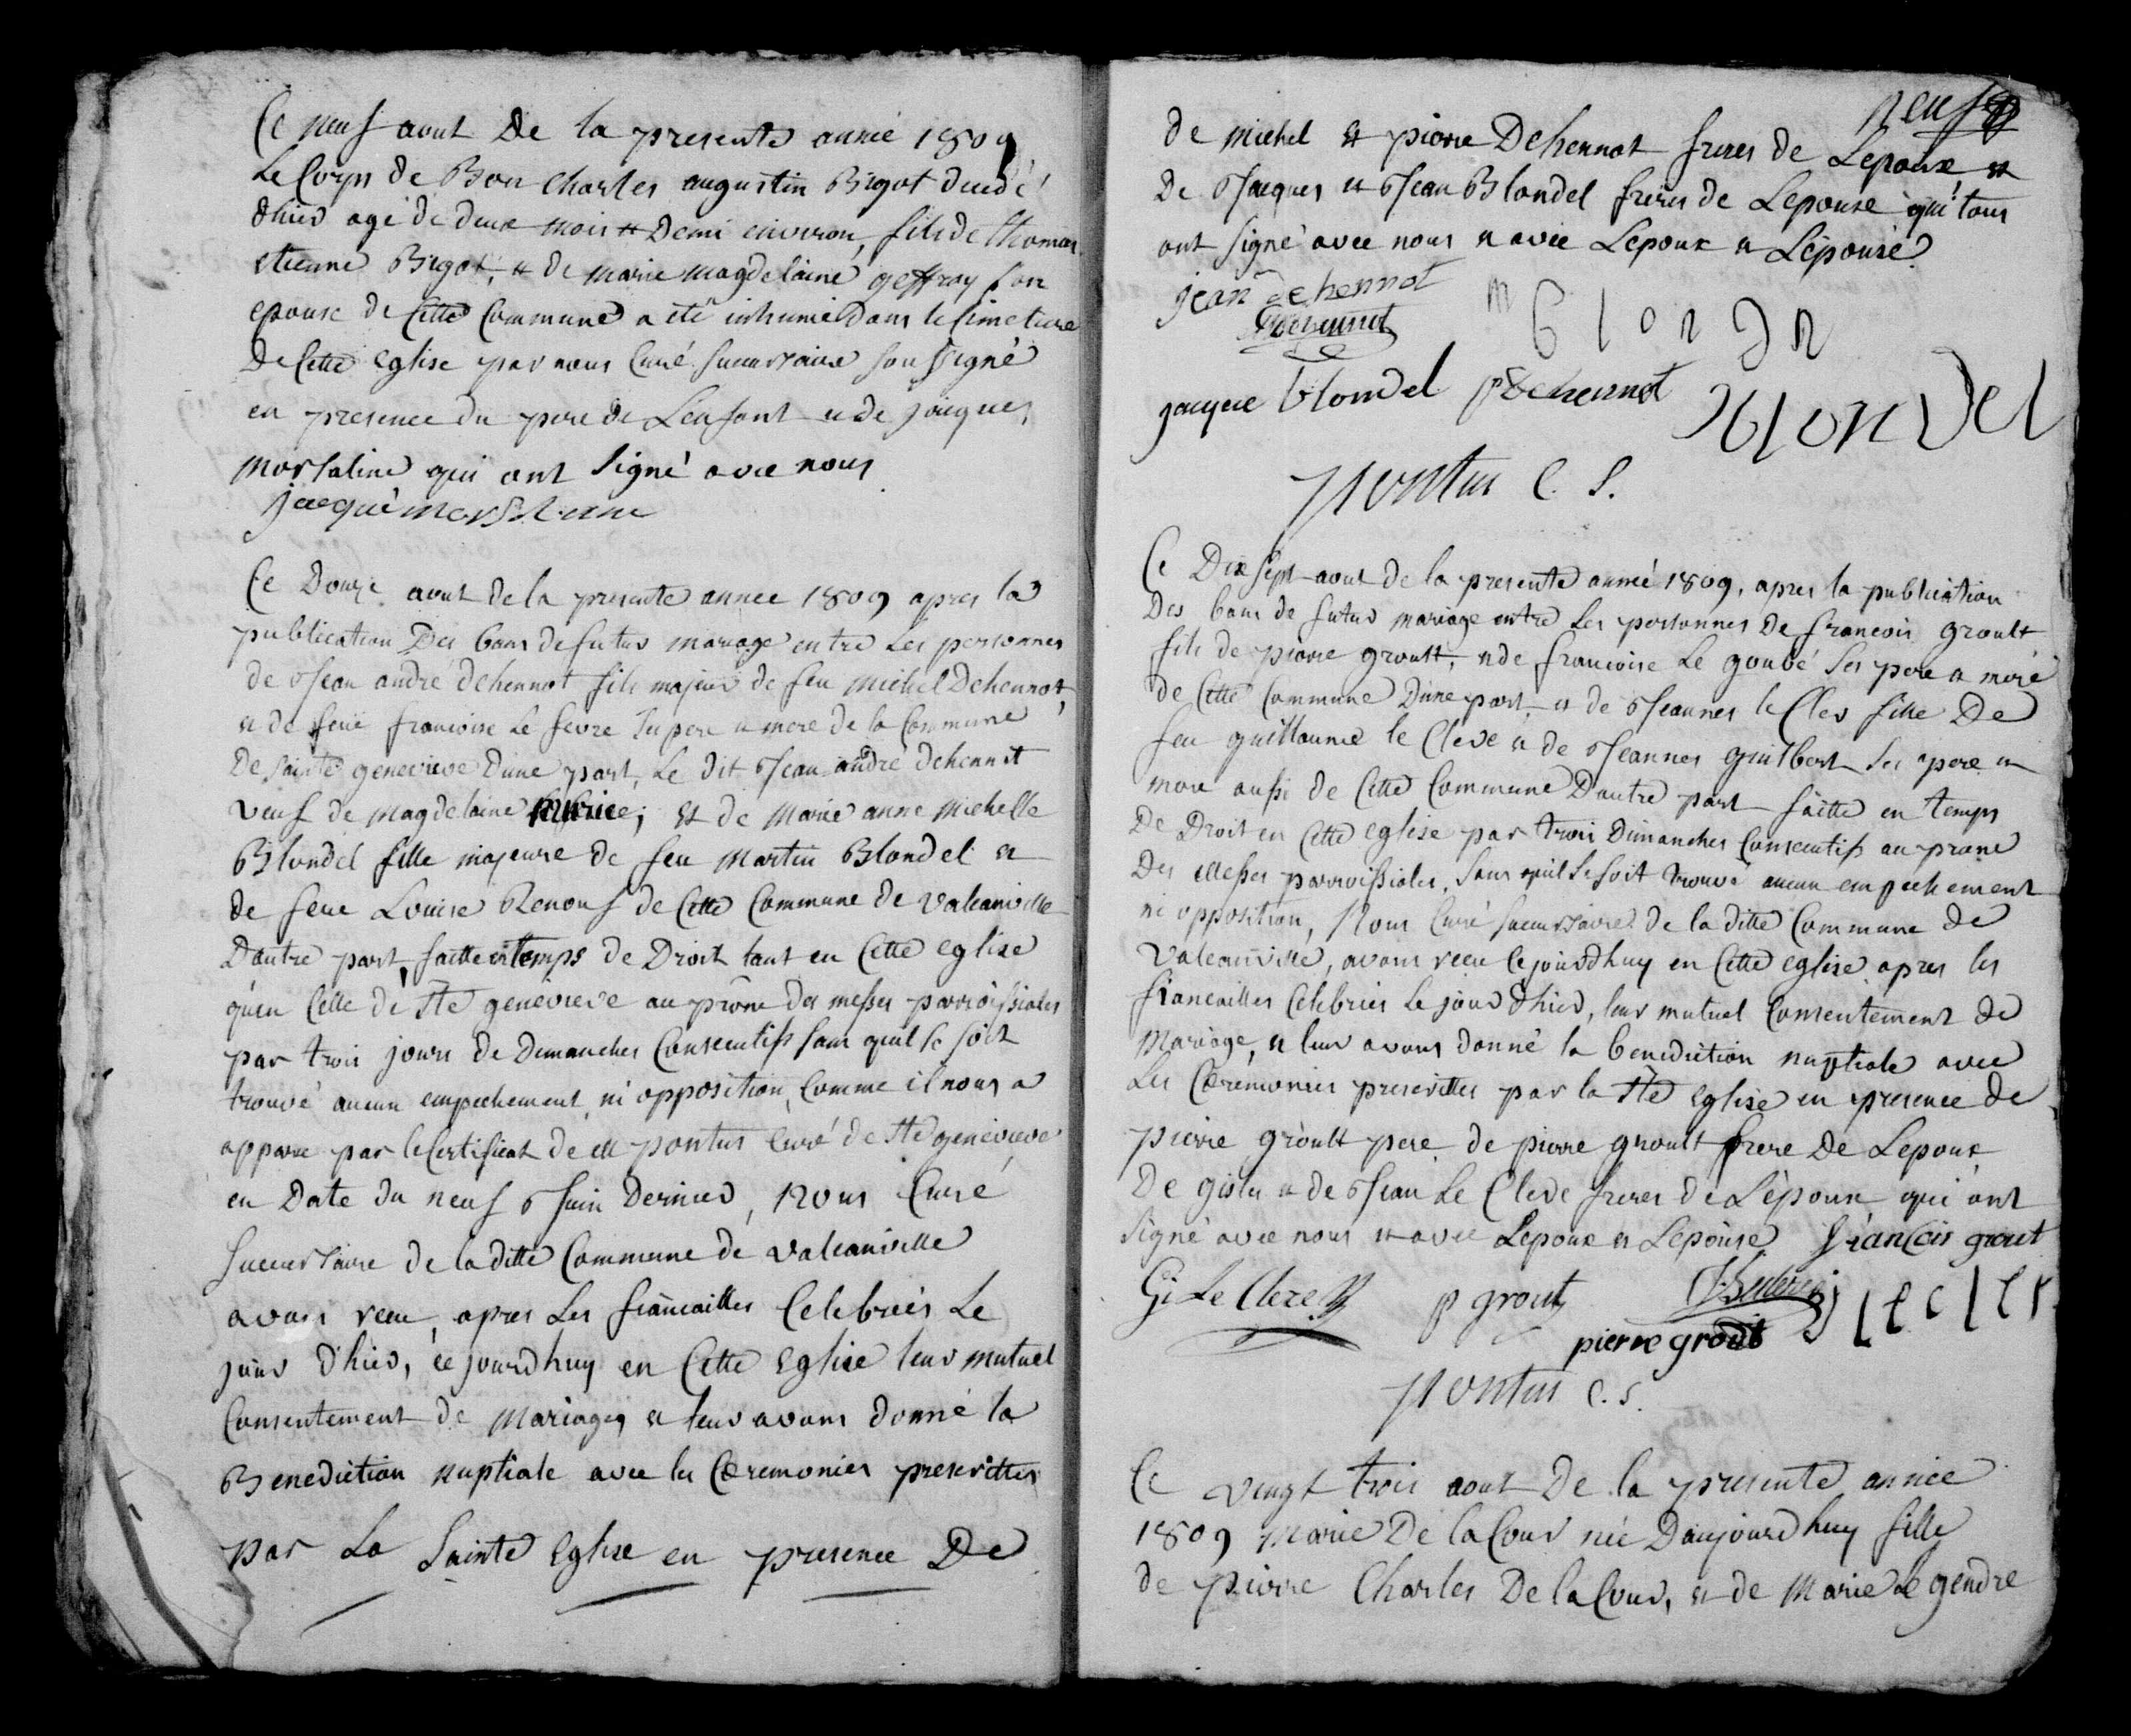 Ce neuf aout De la presente année 1809
Le Corps de Bon Charles augustin Bigot decedé
d'hier agé de deux mois et Demi environ, fils de thomas
etienne Bigot, et de marie magdelaine geffroy son
epouse de Cette Commune a été inhumé dans le Cimetiere
De Cette eglise par nous Curé succursaire soussigné
en presence du pere de L'enfant et de jacques
morsaline qui ont Signé avec nous
jacque morsaline
Ce Douze aout de la presente annee 1809 apres la
publication Des bans de futur mariage entre Les personnes
de Jean andré dehennot fils majeur de feu michel Dehennot,
et de feuë francoise Le fevre ses pere et mere de la Commune
De Sainte genevieve D'une part, Le dit Jean andré dehennot
veuf de magdelaine ; et de Marie anne michelle
Blondel fille majeure de feu Martin Blondel et
de feue Louise Renouf de Cette Commune de valcanville
D'autre part, faitte en temps de Droit tant en Cette eglise
qu'en Celle de Ste genevieve au prône des messes parroissiales
par trois jours de Dimanches Consecutifs sans qu'il se soit
trouvé aucun empechement, ni opposition, Comme il nous a
apparu par le Certificat de M pontus Curé de Ste genevieve
en Date du neuf Juin Dernier, Nous Curé
Succursaire de la ditte Commune de valcanville
avons reçu, apres Les fiançailles Celebrées Le
jour d'hier, ce jourdhuy en Cette Eglise leur mutuel
Consentement de Mariage, et leur avons donné la
Benediction nuptiale avec les Ceremonies prescrittes
par La Sainte Eglise en presence De
neuf
de michel et pierre Dehennot freres de L'epoux et
De Jacques et Jean Blondel freres de L'epouse qui tous
ont signé avec nous et avec L'epoux et L'epouse
jean dehennot
m blondn
Dehennot
jacque blondel p Dehennot blondel
Pontus C. S.
Ce Dix sept aout de la presente année 1809, apres la publication
Des bans de futur mariage entre Les personnes De francois groult
fils de pierre groult, et de francoise Le goubé ses pere et mere
de Cette Commune D'une part, et de Jeannes le Cler fille De
feu guillaume le Clere et de Jeannes guilbert Ses pere et
mere aussi de Cette Commune D'autre part faitte en temps
De Droit en Cette eglise par trois Dimanches Consecutifs au prone
Des Messes parroissiales, Sans qu'il Se soit trouvé aucun empechement
ni opposition, Nous Curé succursaire de la ditte Commune de
valcanville, avons reçu Ce jourdhuy en Cette eglise apres les
fiancailles Celebrées Le jour d'hier, leur mutuel Consentement de
Mariage, et leur avons donné la benediction nuptiale avec
Les Cérémonies prescrittes par la Ste Eglise en presence de
pierre groult pere de pierre groult frere De L'epoux
De gisles et de Jean Le Clere freres de L'epouse qui ont
Signé avec nous et avec L'epoux et L'epouse francois grout
Gi Le Clere p grout
pierre grout J lecler
Pontus C. S.
Ce vingt trois aout De la presente année
1809 Marie De la Cour née D'aujourdhuy fille
de pierre Charles De la Cour, et de Marie Le gendre